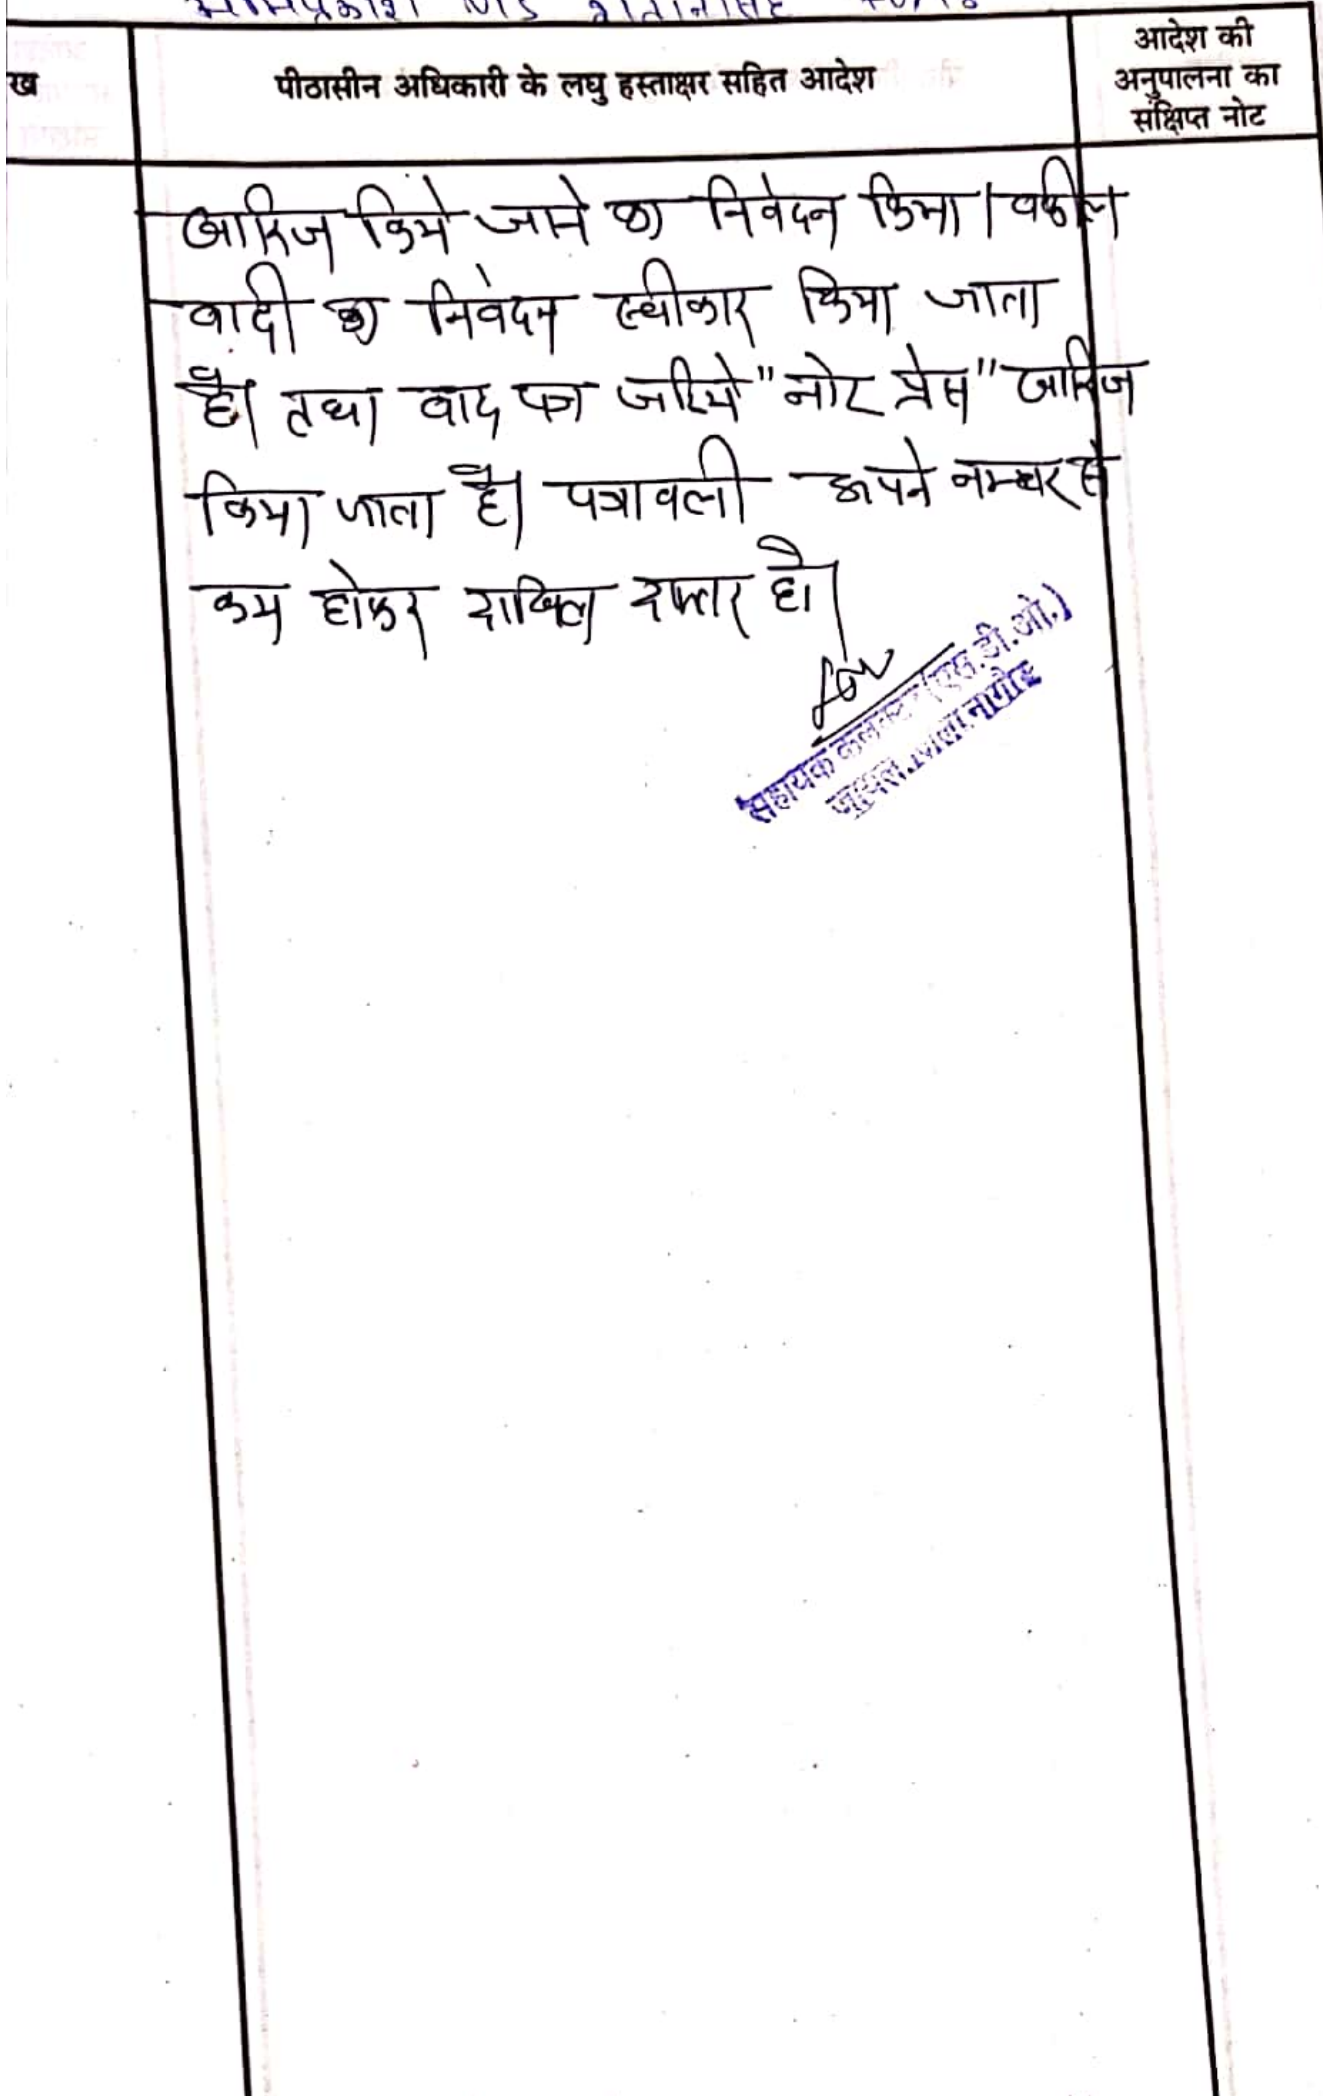 ख
पीठासीन अधिकारी के लघु हस्ताक्षर सहित आदेश
आदेश की
अनुपालना का
संक्षिप्त नोट
खारिज किये जाने का निवेदन किया। वकील
वादी का निवेदन स्वीकार किया जाता
है। तथा वाद पत्र जरिये "नोट प्रेस" खारिज
किया जाता है। पत्रावली अपने नम्बर से
कम होकर दाखिल दफ्तर हो।
सहायक कलक्टर (एस.डी.ओ.)
जायल, जिला नागौर